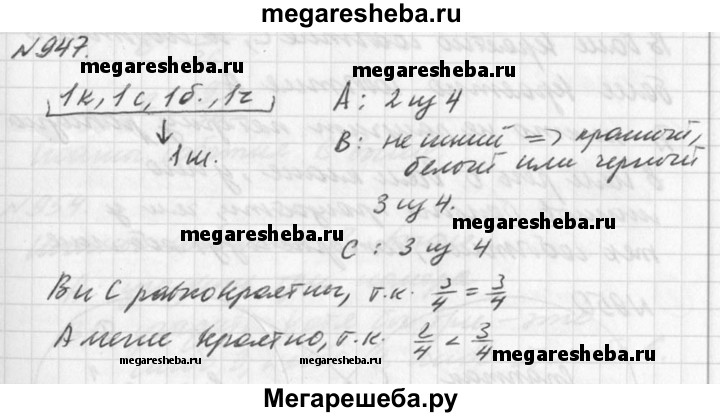 megaresheba.ru
N947.
megaresheba.ru
1к, 1с, 1б., 1ч
A: 2 из 4
1ш.
B: не синий => красный,
белый или черный
3 из 4.
megaresheba.ru
megaresheba.ru
C: 3 из 4
B и C равновероятны, т.к. 3/4 = 3/4
A менее вероятно, т.к. 2/4 < 3/4
megaresheba.ru
megaresheba.ru
megaresheba.ru
Мегарешеба.ру